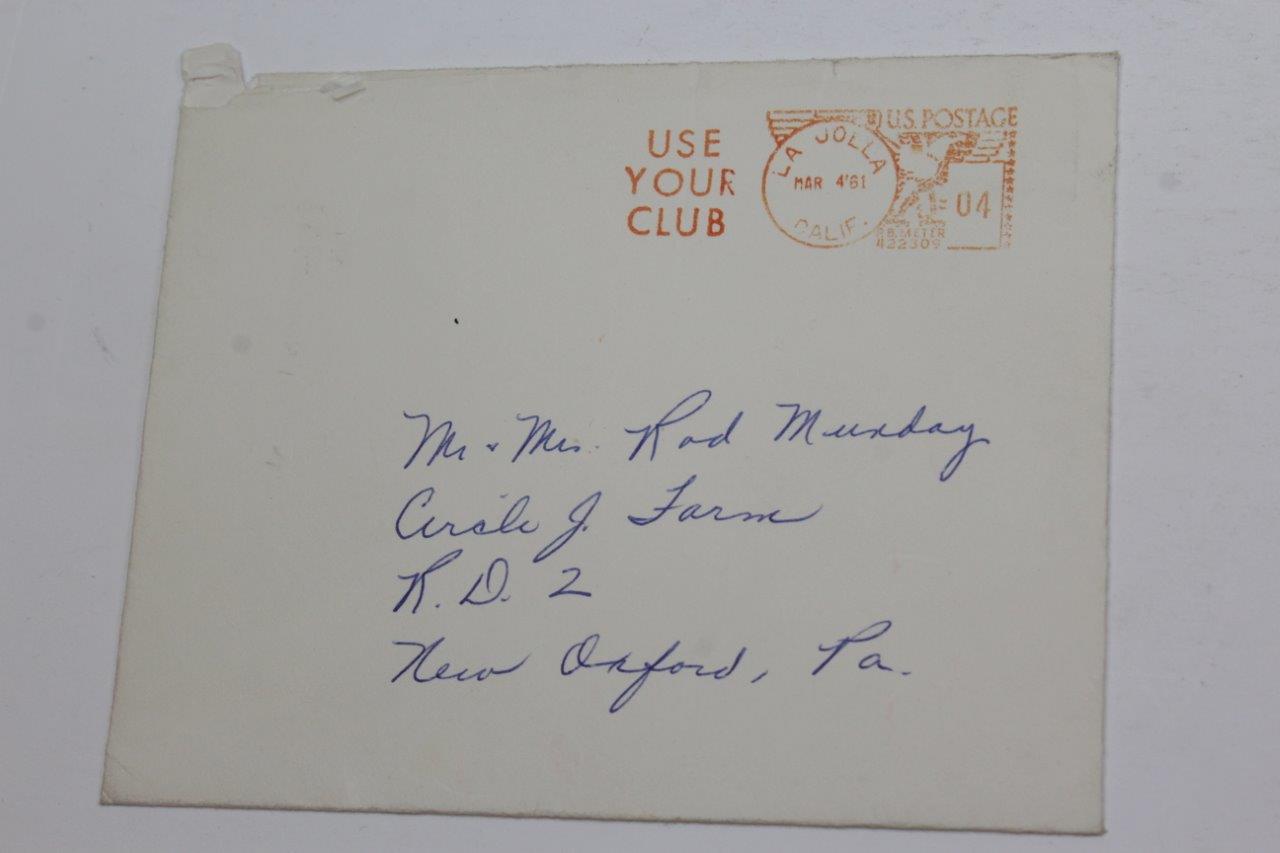 USE
YOUR
CLUB
LA JOLLA
MAR 4'61
CALIF.
U.S. POSTAGE
04
P.B. METER
422309
Mr & Mrs. Rod Munday
Circle J. Farm
R. D. 2
New Oxford, Pa.